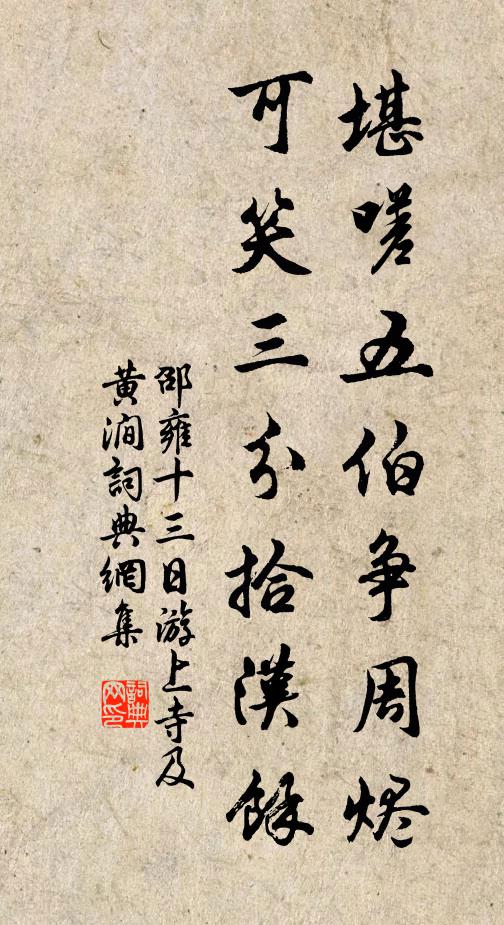 堪嗟五伯争周烬
可笑三分拾漢餘
邵雍十三日游上寺及
黄澗詞典網集
詞典网印